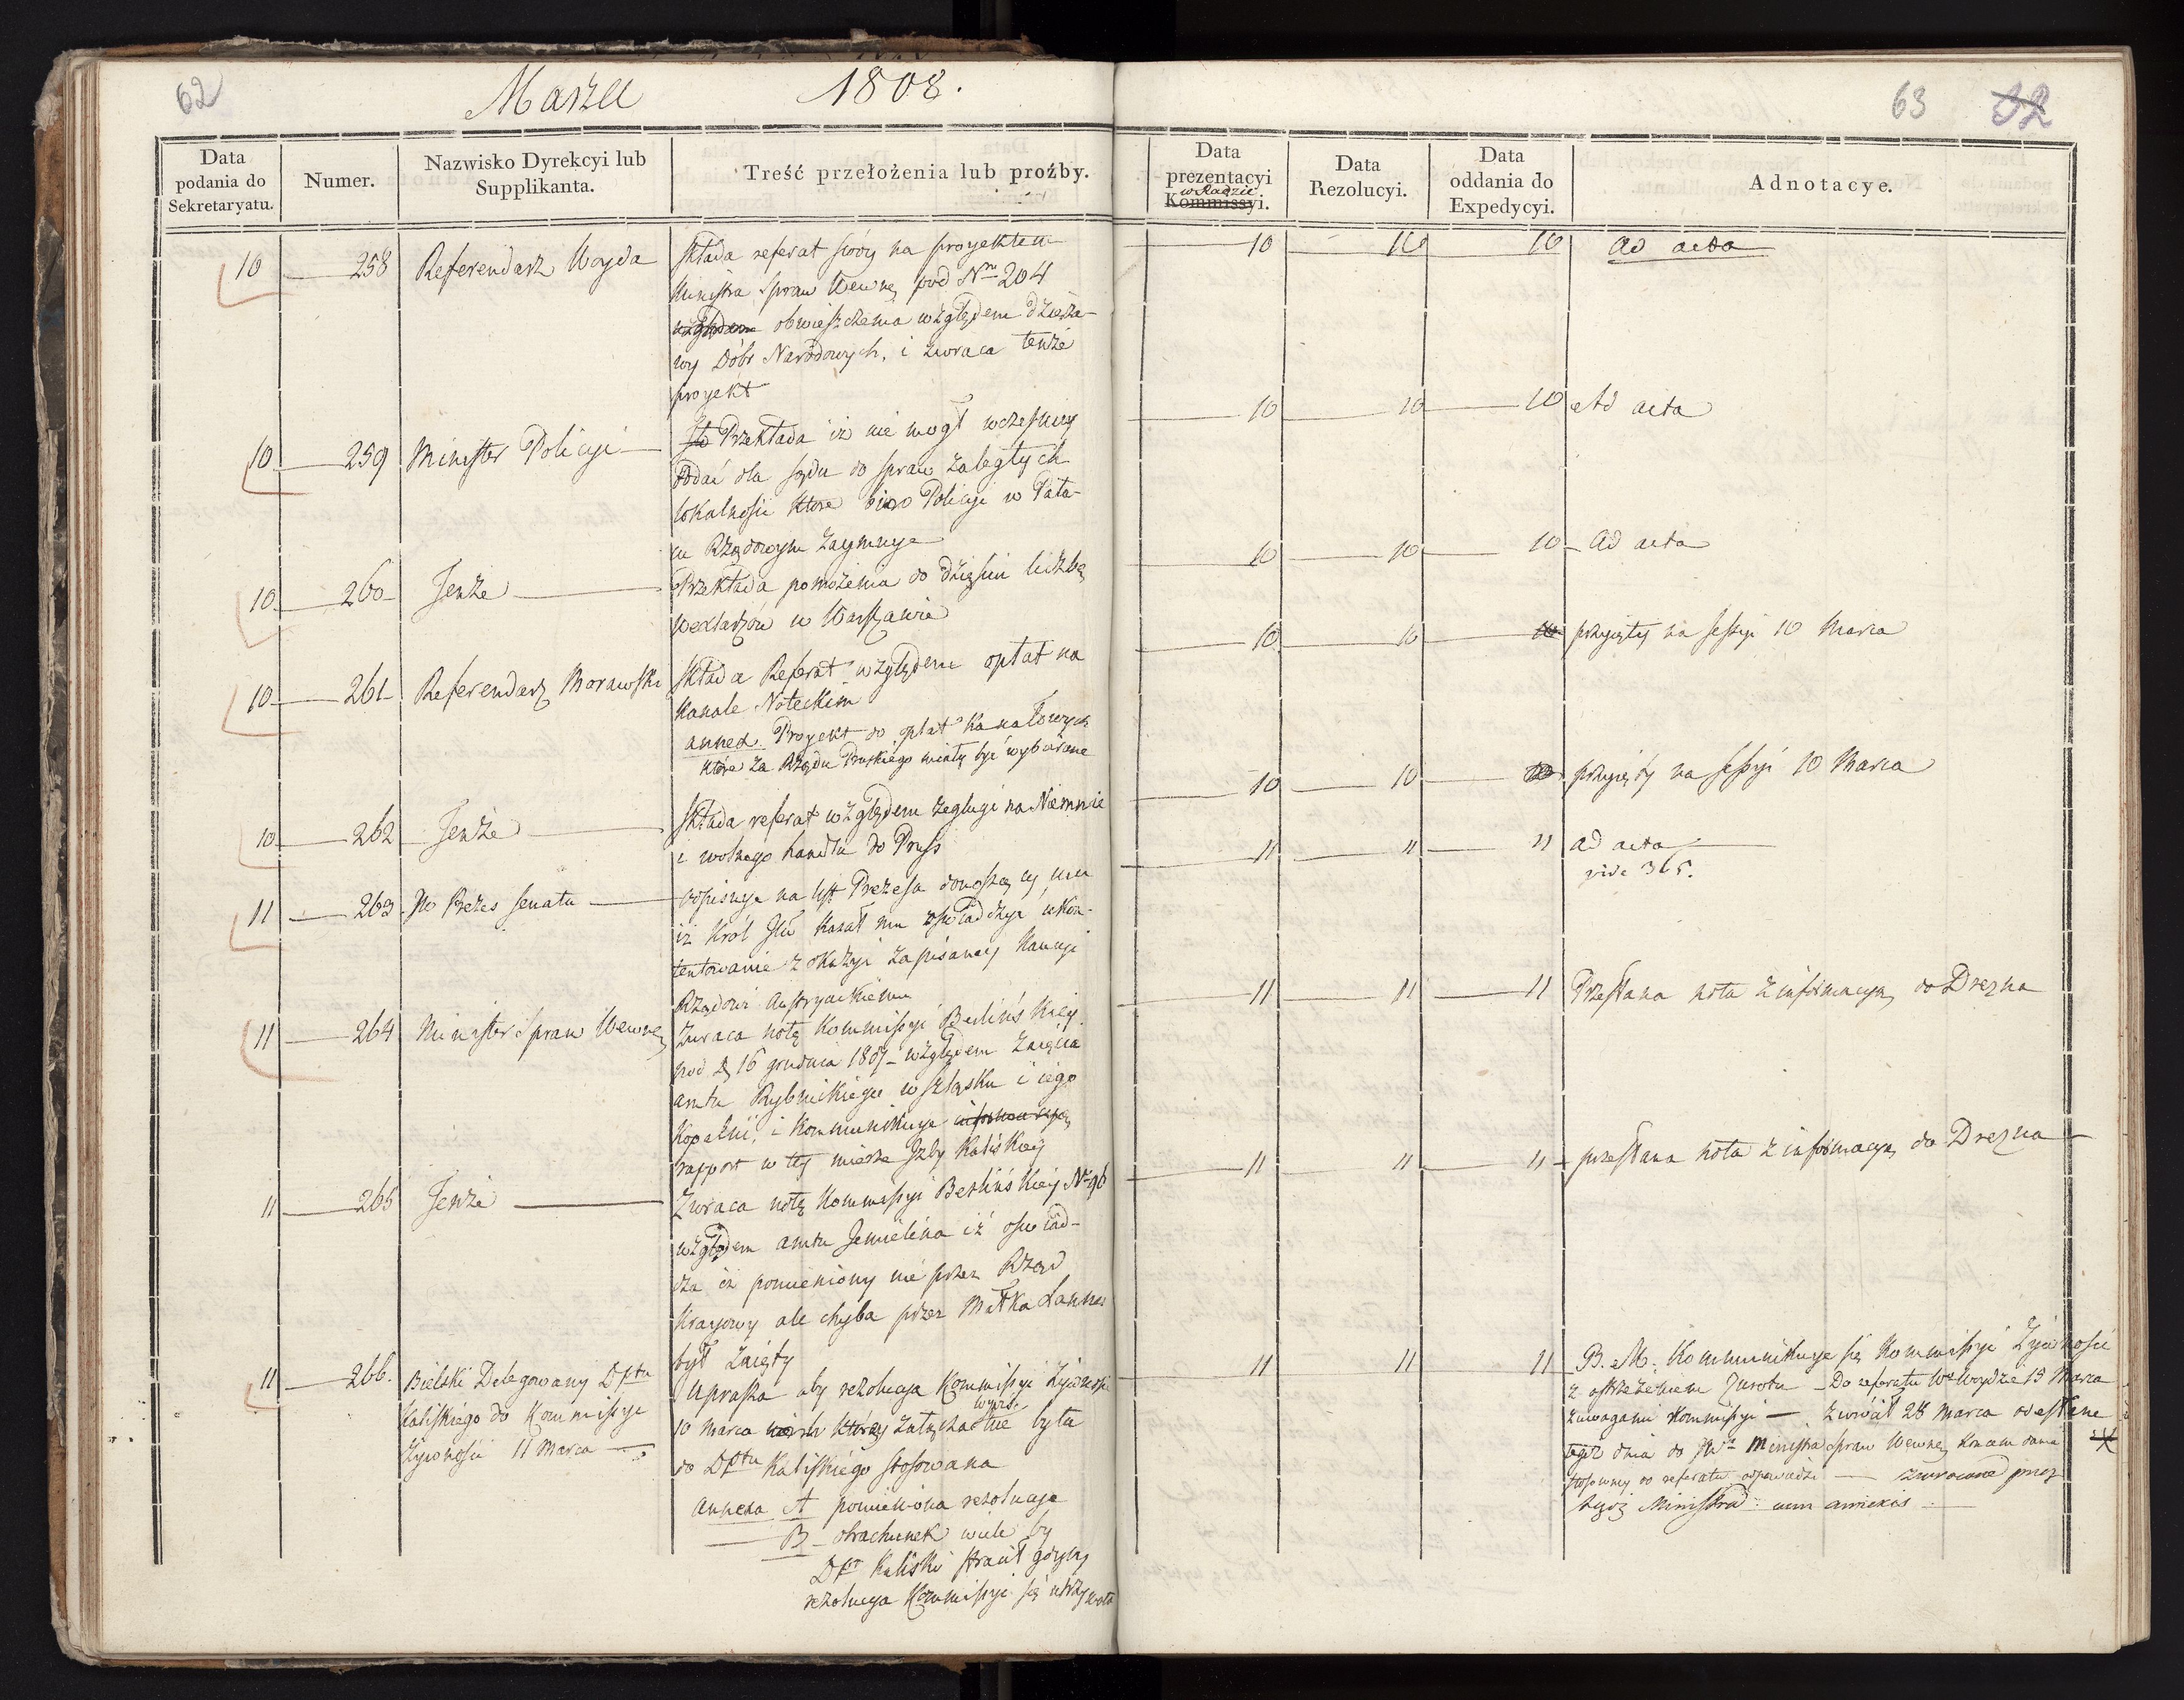 62
Marzec 1808.
63 32
Data podania do Sekretaryatu.
Numer.
Nazwisko Dyrekcyi lub Supplikanta.
Treść przełożenia lub proźby.
Data prezentacyi w Radzie Kommissyi.
Data Rezolucyi.
Data oddania do Expedycyi.
Adnotacye.
10 258 Referendarz Woyda
składa referat swóy na proyektem
Ministra Spraw Wewnę pod Nro 204
względem obwieszczenia względem dzierża-
wy Dóbr Narodowych, i zwraca tenże
proyekt
10 10 10 ad acta
10 259 Minister Policyi
Przekłada iż nie mogł wczesniey
oddać dla sądu do spraw zaległych
lokalności które biuro Policyi w Pała-
cu Rządowym zaymuje
10 10 10 Ad acta
10 260 Tenże
Przekłada pomnożenia do dziesiu liczbę
Wexlarzów w Warszawie
10 10 10 Ad acta
10 261 Referendarz Morawski
składa Referat względem opłat na
Kanale Noteckim
annex. Proyekt do opłat Kanałowych
które za Rządu Pruskiego miały być wybierane
10 10 10 przyięty na sessyi 10 Marca
10 262 Tenże
składa referat względem zeglugi na Niemnie
i wolnego handlu do Pruss
10 10 10 przyięty na sessyi 10 Marca
11 263 JW Prezes Senatu
odpisuye na list Prezesa donoszący mu
iż Król JMć kazał mu oświadczyć ukon-
tentowanie z okazyi zapisaney Kaucyi
Rządowi Austryackiemu
11 11 11 ad acta
vide 365.
11 264 Minister Spraw Wewnę
Zwraca notę Kommissyi Berlińskiey
pod D 16 grudnia 1807 względem zaięcia
amtu Rybnickiego w Szląsku i iego
Kopalni, i kommunikuye informacyą
rapport w tey mierze Izby Kaliskiey
11 11 11 Przesłana nota z informacyą do Drezna
11 265 Tenże
Zwraca notę Kommissyi Berlińskiey No 96
względem amtu Jemielina iż oswiad-
cza iż pomieniony nie przez Rząd
Kraiowy ale chyba przez Młka Lannes
był zaięty
11 11 11 przesłana nota z informacyą do Drezna
11 266. Bielski Delegowany Dptu
Kaliskiego do Kommissyi
Żywności 11 Marca
Uprasza aby rezolucya Kommissyi Żywności
10 Marca którey załącza nie była
do Dptu Kaliskiego stosowana
annexa A pomieniona rezolucya
B obrachunek wiele by
Dpt Kaliski stracił gdyby
rezolucya Kommissyi się utrzymała
11 11 11 B. M. Kommunikuye się Kommissyi Żywności
z ostrzeżeniem zwrotu Do referatu We Woydzie 19 Marca
z uwagami Kommissyi — zwrócił 28 Marca odesłane
tegoż dnia do JWo Ministra Spraw Wewnę końcem dania
stosowney do referatu odpowiedzi — zwrocone przez
tegoż Ministra cum annexis